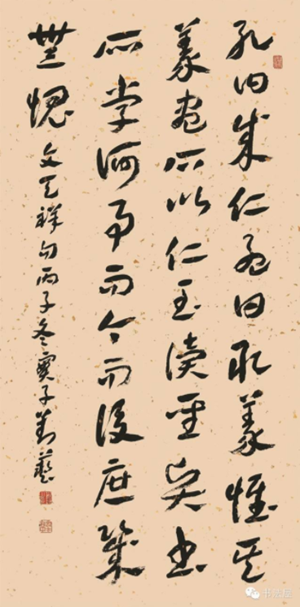 孔曰成仁孟曰取義惟其
義盡所以仁至读圣贤书
所学何事而今而後庶幾
無愧 文天祥句丙子冬 劉藝